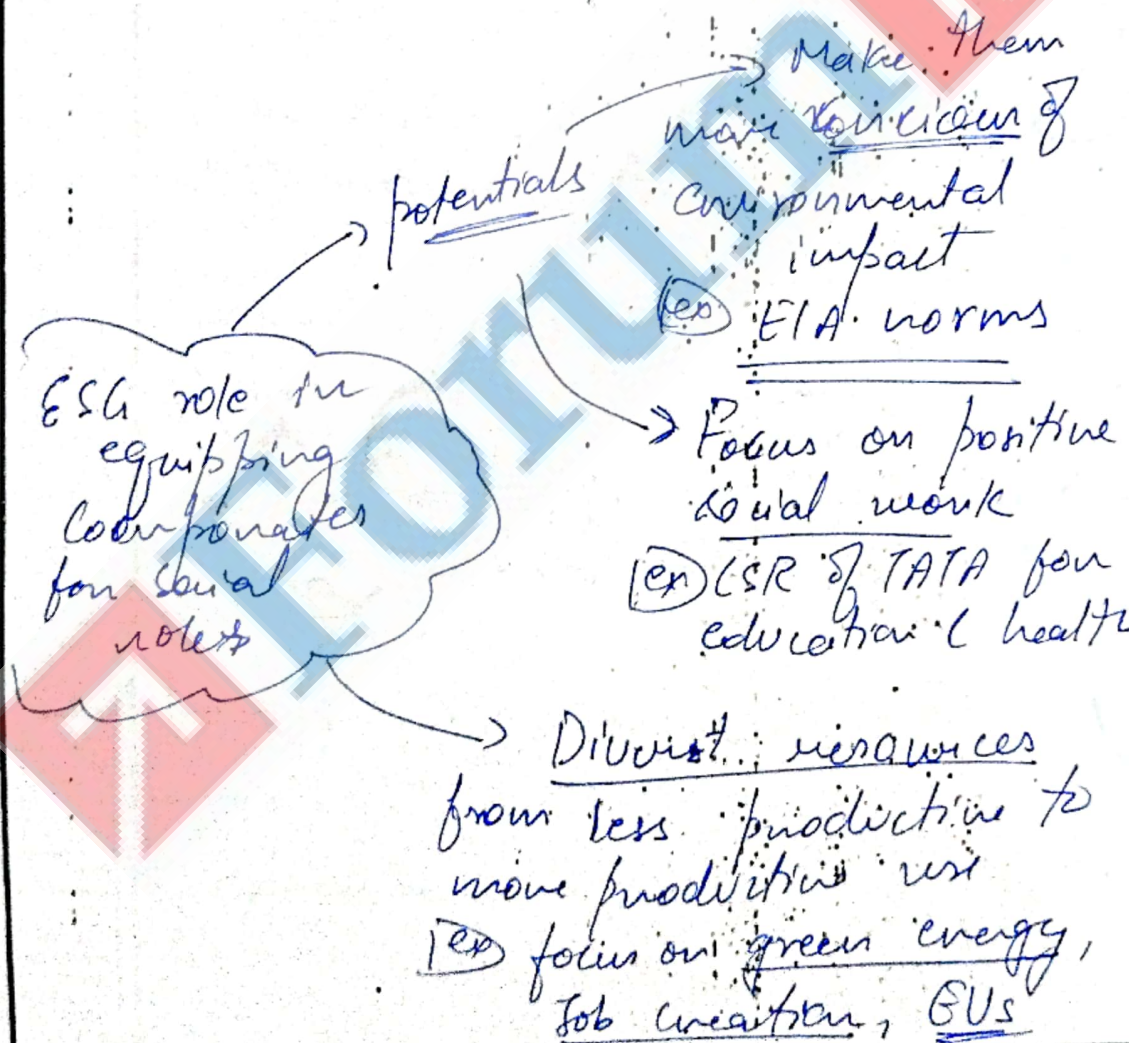 ESG role in
equipping
Coorporates
for social
roles
potentials
Make them
more conscious of
environmental
impact
ex EIA norms
Focus on positive
social work
ex CSR of TATA for
education & health
Divert resources
from less productive to
more productive use
ex focus on green energy,
Job creation, EVs
Forum